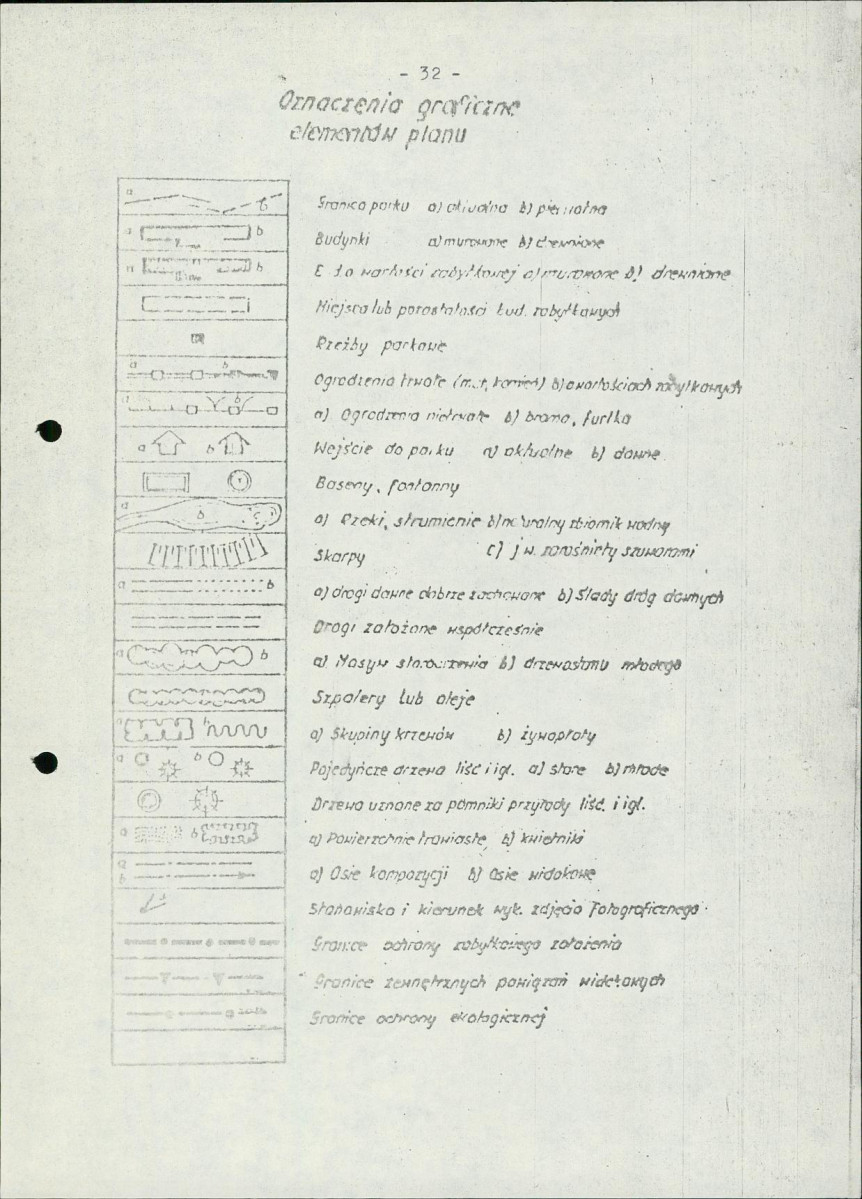 - 32 -
Oznaczenia graficzne
elementów planu
Granica parku a) aktualna b) pierwotna
Budynki a) murowane b) drewnione
o wartości zabytkowej a) murowane b) drewniane
Miejsca lub pozostałości bud. zabytkowych
Rzeźby parkowe
Ogrodzenia trwałe b) o wartościach zabytkowych
a) Ogrodzenia nietrwałe b) brama, furtka
Wejście do parku a) aktualne b) dawne
Baseny, fontanny
a) Rzeki, strumienie b) naturalny zbiornik wodny
Skarpy c) j w. zarośnięty szuwarami
a) drogi dawne dobrze zachowane b) Ślady dróg dawnych
Drogi założone współcześnie
a) Masyw starodrzewia b) drzewostanu młodego
Szpalery lub aleje
a) Skupiny krzewów b) żywopłoty
Pojedyńcze drzewa liść i igł. a) stare b) młode
Drzewa uznane za pomniki przyrody liść. i igł.
a) Powierzchnie trawiaste, b) kwietniki
a) Osie kompozycji b) Osie widokowe
Stanowisko i kierunek wyk. zdjęcia fotograficznego
Granice ochrony zabytkowego założenia
Granice zewnętrznych powiązań widokowych
Granice ochrony ekologicznej